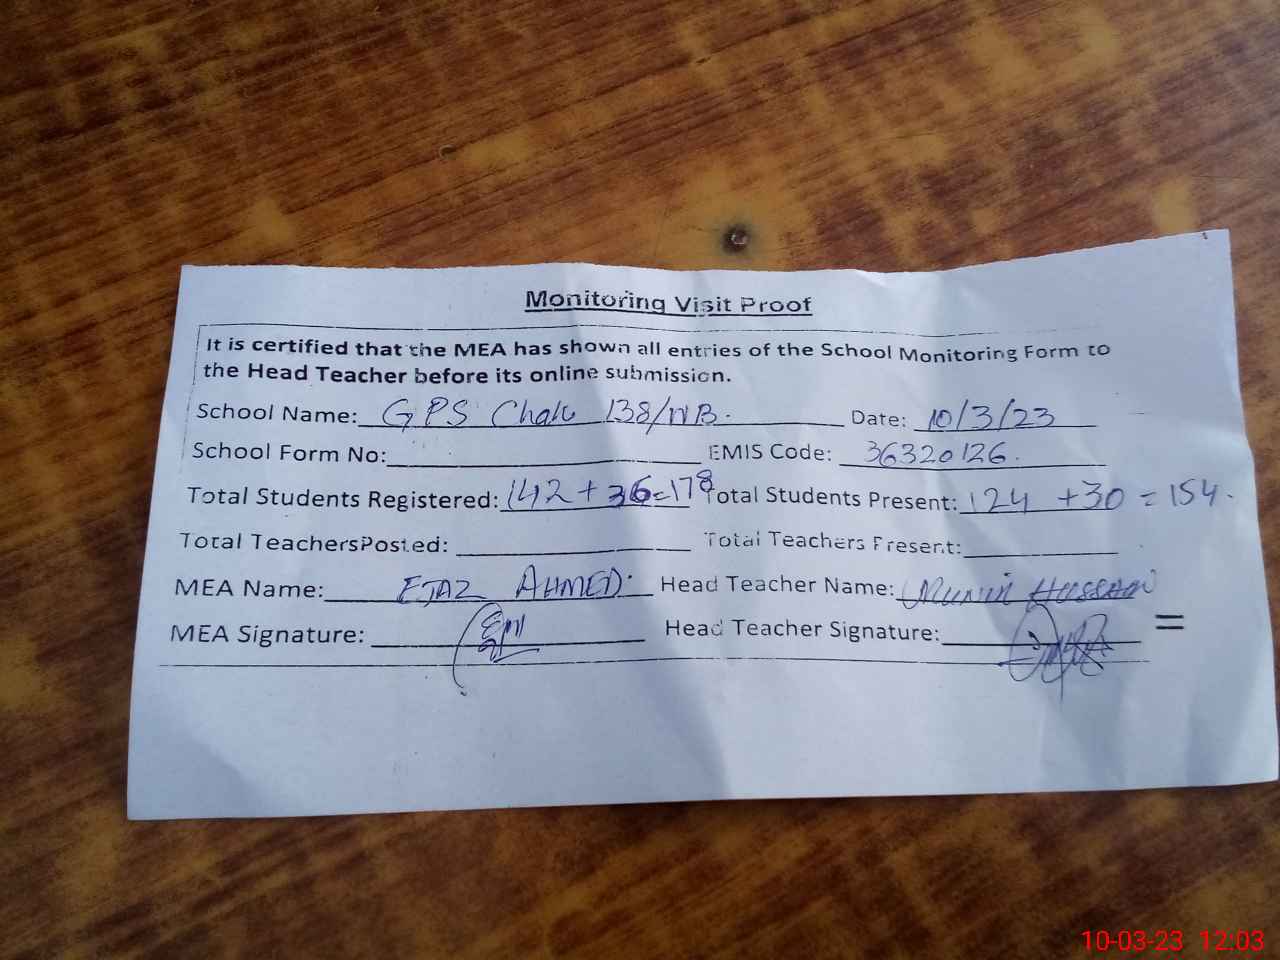 Monitoring Visit Proof
It is certified that the MEA has shown all entries of the School Monitoring Form to
the Head Teacher before its online submission.
School Name: GPS Chak 138/NB. Date: 10/3/23
School Form No: EMIS Code: 36320126.
Total Students Registered: 142+36=178 Total Students Present: 124 +30 = 154.
Total TeachersPosted: Total Teachers Present:
MEA Name: EJAZ AHMED. Head Teacher Name: Munir Hussain
MEA Signature: Head Teacher Signature: =
10-03-23 12:03